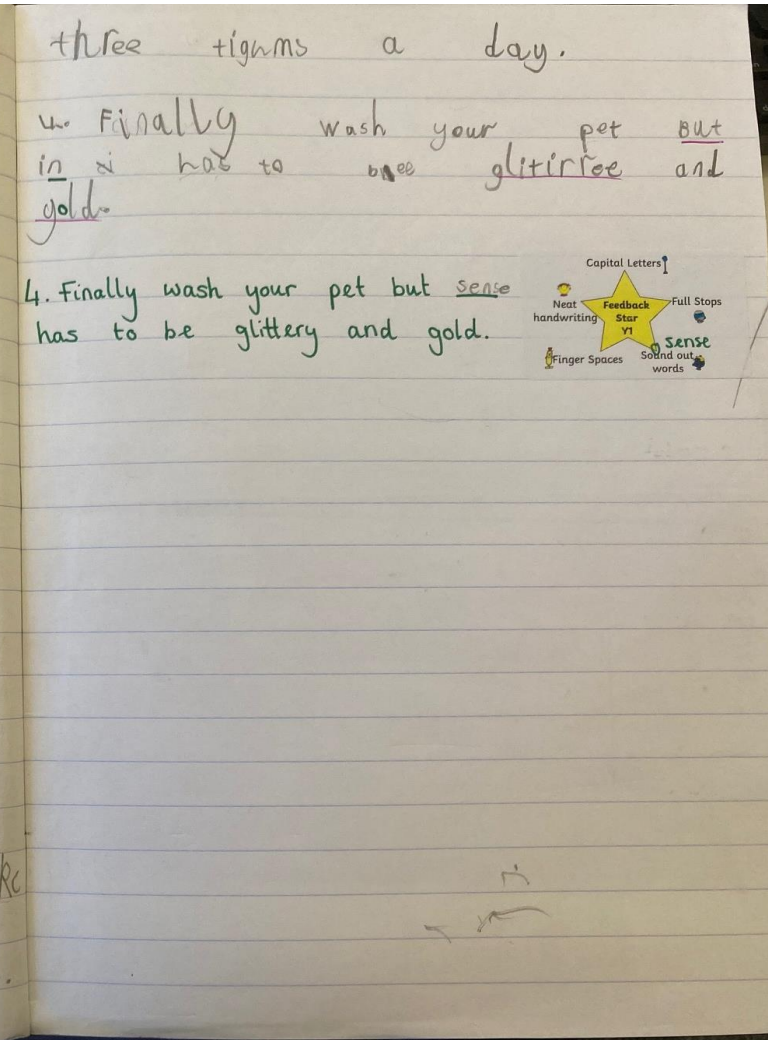 three tignms a day.
4. Finally wash your pet but
in has to bee glitirree and
gold.
4. Finally wash your pet but sense
has to be glittery and gold.
Capital Letters
Neat
handwriting
Feedback
Star
Y1
Full Stops
sense
Finger Spaces
Sound out
words
Rc